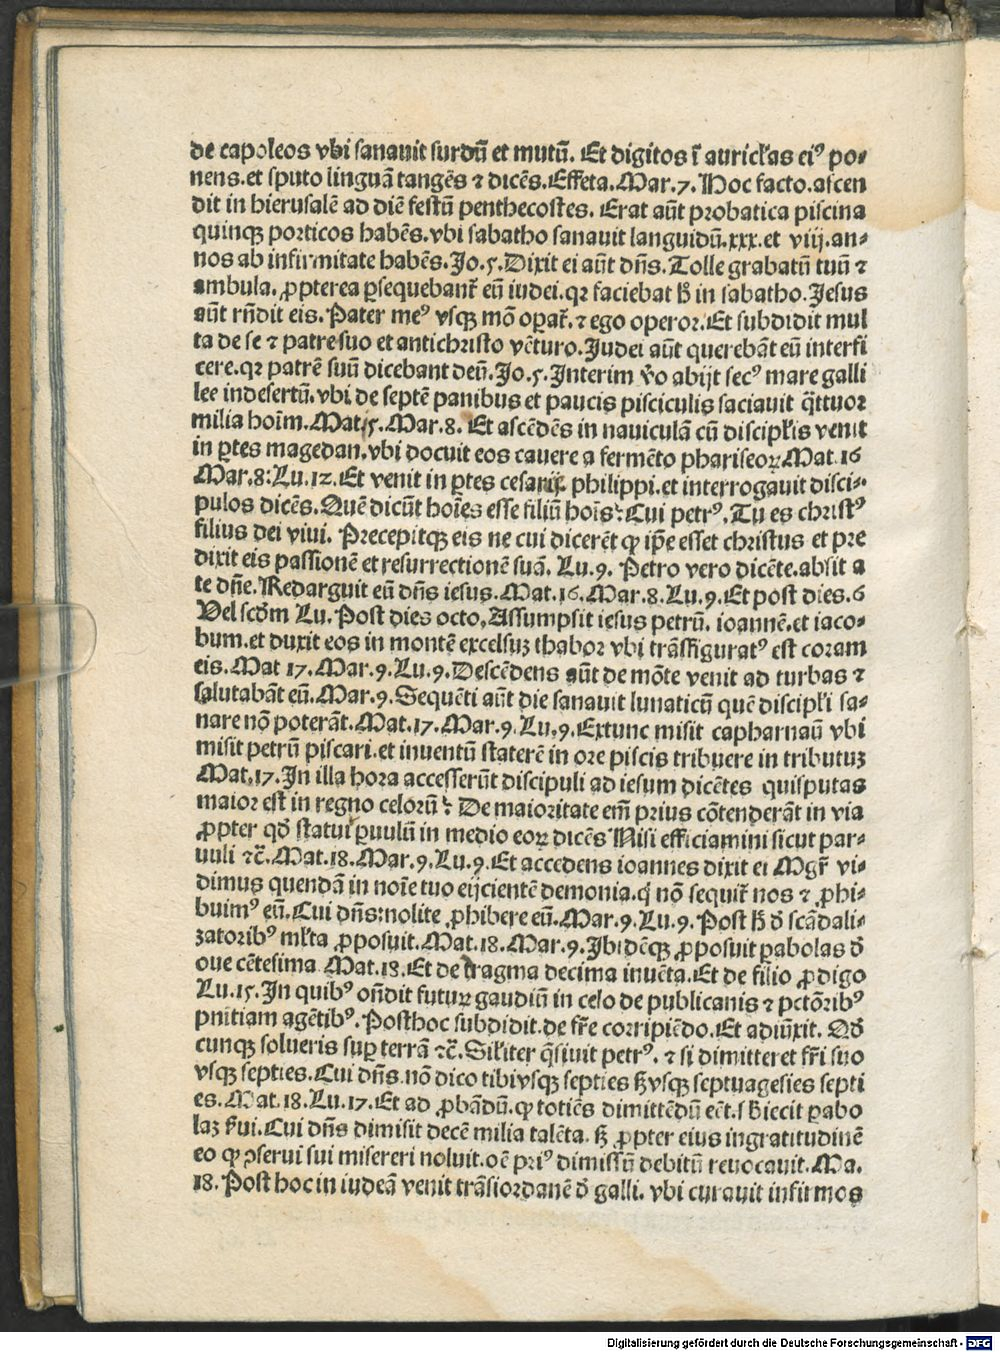 de capoleos vbi sanauit surdū et mutū. Et digitos ī auricłas ei⁹ po-
nens.et sputo linguā tangēs ⁊ dicēs.Effeta.Mar.7.Hoc facto.ascen
dit in hierusalē ad diē festū penthecostes. Erat aūt probatica piscina
quinqꝫ porticos habēs.vbi sabatho sanauit languidū.xxx.et viij.an-
nos ab infirmitate habēs.Jo.5.Dixit ei aūt dn̄s.Tolle grabatū tuū ⁊
ambula. ꝓpterea ꝑsequebant̄ eū iudei.qꝛ faciebat h̄ in sabatho.Jesus
aūt rn̄dit eis.Pater me⁹ vsqꝫ mō oꝑat̄.⁊ ego operor.Et subdidit mul
ta de se ⁊ patre suo et antichristo vēturo.Judei aūt querebāt eū interfi
cere.qꝛ patrē suū dicebant deū.Jo.5.Interim v̄o abijt sec⁹ mare galli
lee in desertū.vbi de septē panibus et paucis pisciculis saciauit q̄ttuor
milia hoīm.Mat.15.Mar.8. Et ascēdēs in nauiculā cū discipłis venit
in ꝑtes magedan.vbi docuit eos cauere a fermēto phariseoꝝ.Mat.16
Mar.8:Lu.12.Et venit in ꝑtes cesarije philippi.et interrogauit disci-
pulos dicēs.Quē dicūt hoīes esse filiū hoīs? Cui petr⁹.Tu es christ⁹
filius dei viui. Precepitqꝫ eis ne cui dicerēt ꝙ ip̄e esset christus et pre
dixit eis passionē et resurrectionē suā. Lu.9. Petro vero dicēte.absit a
te dn̄e.Redarguit eū dn̄s iesus.Mat.16.Mar.8.Lu.9.Et post dies.6
Vel scd̄m Lu. Post dies octo.Assumpsit iesus petrū. ioannē.et iaco-
bum.et duxit eos in montē excelsuꝫ thabor vbi trāsfigurat⁹ est coram
eis.Mat 17.Mar.9.Lu.9.Descēdens aūt de mōte venit ad turbas ⁊
salutabāt eū.Mar.9.Sequēti aūt die sanauit lunaticū quē discipłi sa-
nare nō poterāt.Mat.17.Mar.9.Lu.9.Extunc misit capharnaū vbi
misit petrū piscari.et inuentū staterē in ore piscis tribuere in tributuꝫ
Mat.17.In illa hora accesserūt discipuli ad iesum dicētes quisputas
maior est in regno celorū? De maioritate em̄ prius cōtenderāt in via
ꝓpter qd̄ statui ꝑuulū in medio eoꝝ dicēs Nisi efficiamini sicut par-
uuli ⁊c̄.Mat.18.Mar.9.Lu.9.Et accedens ioannes dixit ei Mgr̄ vi-
dimus quendā in noīe tuo eijcientē demonia.q̇ nō sequit̄ nos ⁊ ꝓhi-
buim⁹ eū.Cui dn̄s:nolite ꝓhibere eū.Mar.9.Lu.9. Post h̄ d̄ scādali-
zatorib⁹ młta ꝓposuit.Mat.18.Mar.9.Ibidēqꝫ ꝓposuit ꝑabolas d̄
oue cētesima Mat.18.Et de dragma decima inuēta.Et de filio ꝓdigo
Lu.15.In quib⁹ on̄dit futuꝝ gaudiū in celo de publicanis ⁊ pctōrib⁹
pnitiam agētib⁹. Posthoc subdidit de fr̄e corripiēdo.Et adiūxit. Qd̄
cunqꝫ solueris suꝑ terrā ⁊c̄. Siłiter q̄siuit petr⁹. ⁊ si dimitteret fr̄i suo
vsqꝫ septies.Cui dn̄s nō dico tibi vsqꝫ septies sꝫ vsqꝫ septuagesies septi
es.Mat.18.Lu.17.Et ad ꝓbādū.ꝙ totiēs dimittēdū eēt.sb̄iecit ꝑabo
laꝫ ẜui.Cui dn̄s dimisit decē milia talēta.sꝫ ꝓpter eius ingratitudinē
eo ꝙ ꝯserui sui misereri noluit.oē pri⁹ dimissū debitū reuocauit.Ma.
18. Post hoc in iudeā venit trāsiordanē d̄ galli. vbi curauit infirmos
Digitalisierung gefördert durch die Deutsche Forschungsgemeinschaft - DFG